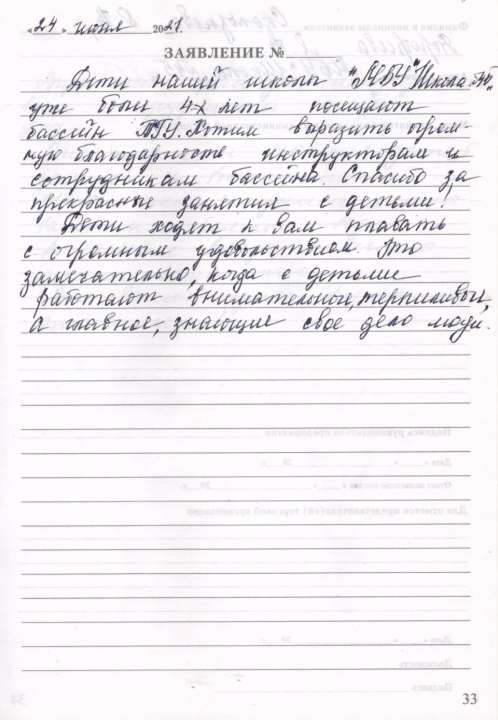 «24» июня 2021.
ЗАЯВЛЕНИЕ №
Дети нашей школы "МБУ "Школа
уже более 4х лет посещают
бассейн ТГУ. Хотим выразить огром-
ную благодарность инструкторам и
сотрудникам бассейна. Спасибо за
прекрасные занятия с детьми!
Дети ходят к вам плавать
с огромным удовольствием. Это
замечательно, когда с детьми
работают внимательные, терпиливые,
а главное, знающие свое дело люди.
33